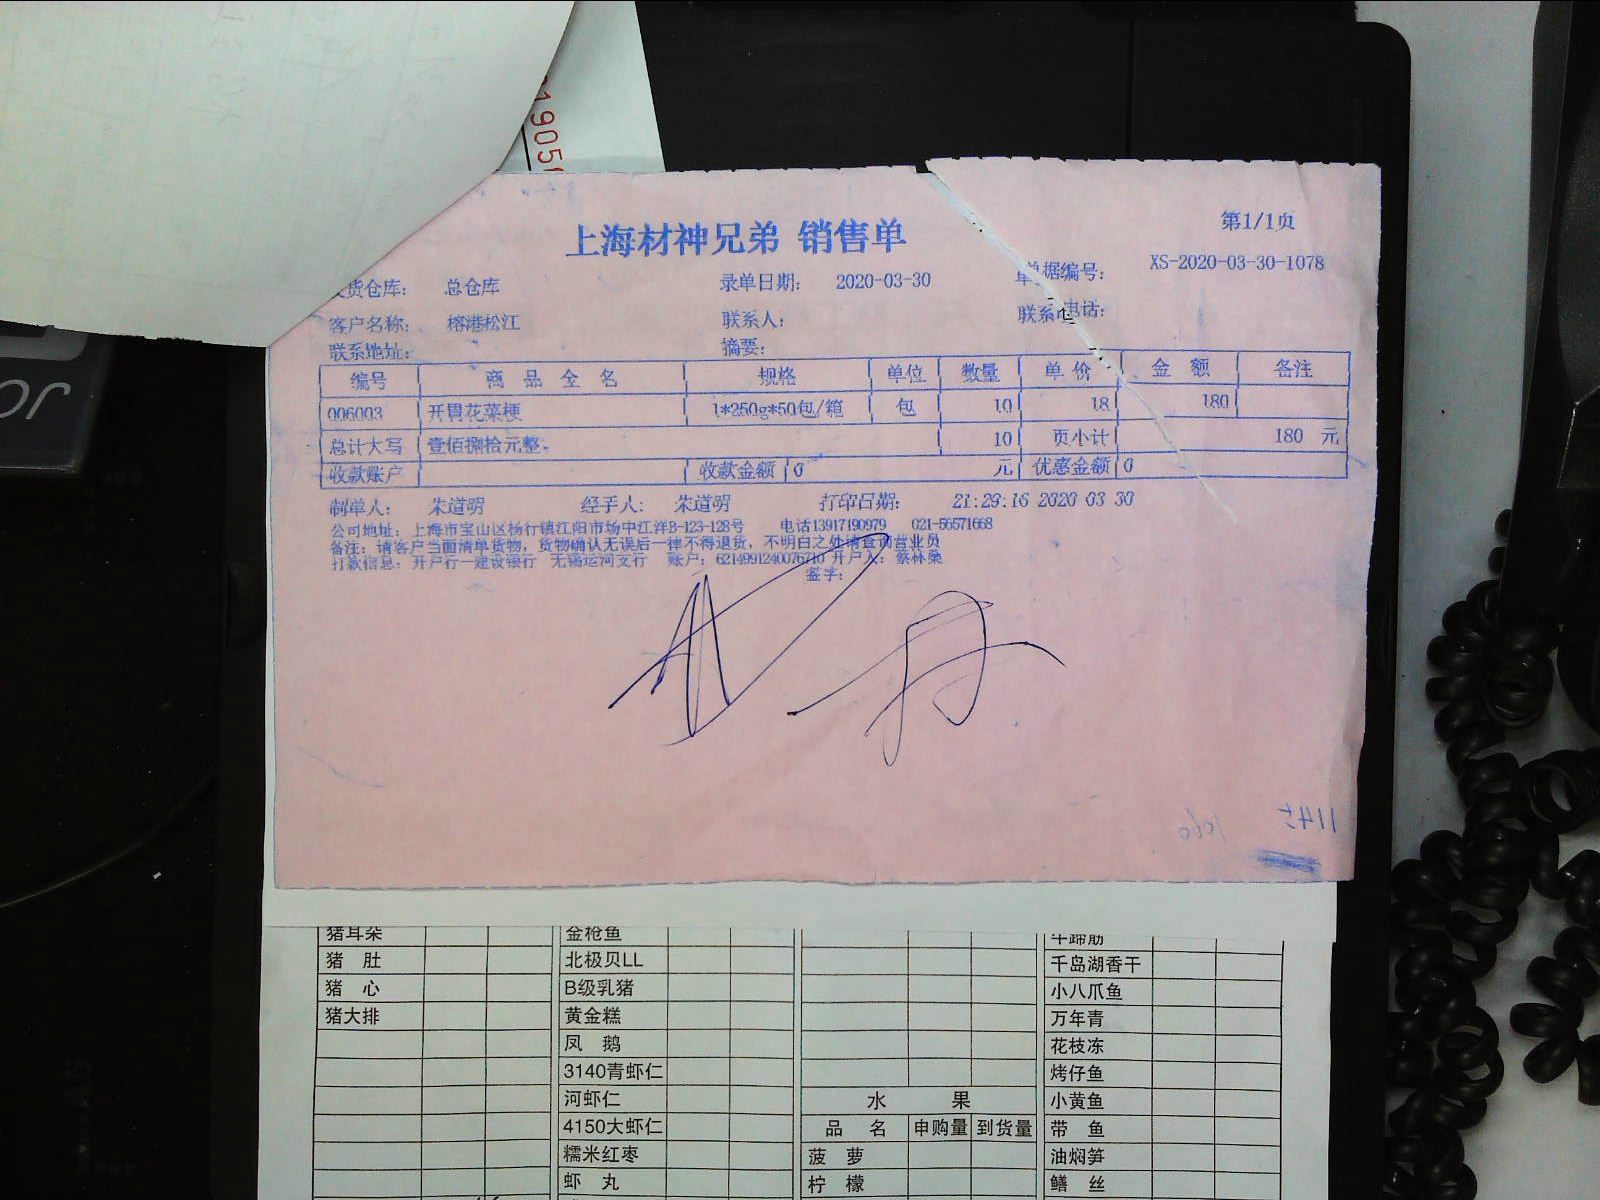 1905
上海材神兄弟 销售单
第1/1页
发货仓库： 总仓库 录单日期： 2020-03-30 单据编号： XS-2020-03-30-1078
客户名称： 榕港松江 联系人： 联系电话：
联系地址： 摘要：
编号 商 品 全 名 规格 单位 数量 单 价 金 额 备注
006003 开胃花菜梗 1*250g*50包/箱 包 10 18 180
总计大写 壹佰捌拾元整. 10 页小计 180 元
收款账户 收款金额 0 元 优惠金额 0
制单人： 朱道明 经手人： 朱道明 打印日期： 21:29:16 2020 03 30
公司地址：上海市宝山区杨行镇江阳市场中江洋B-123-128号 电话13917190979 021-56571668
备注：请客户当面清单货物，货物确认无误后一律不得退货，不明白之处请查询营业员
打款信息：开户行一建设银行 无锡运河支行 账户：6214991240076710 开户人：蔡林燊
签字：
1145
1060
猪耳朵 金枪鱼 牛蹄筋
猪 肚 北极贝LL 千岛湖香干
猪 心 B级乳猪 小八爪鱼
猪大排 黄金糕 万年青
凤 鹅 花枝冻
3140青虾仁 烤仔鱼
河虾仁 水 果 小黄鱼
4150大虾仁 品 名 申购量 到货量 带 鱼
糯米红枣 菠 萝 油焖笋
虾 丸 柠 檬 鳝 丝